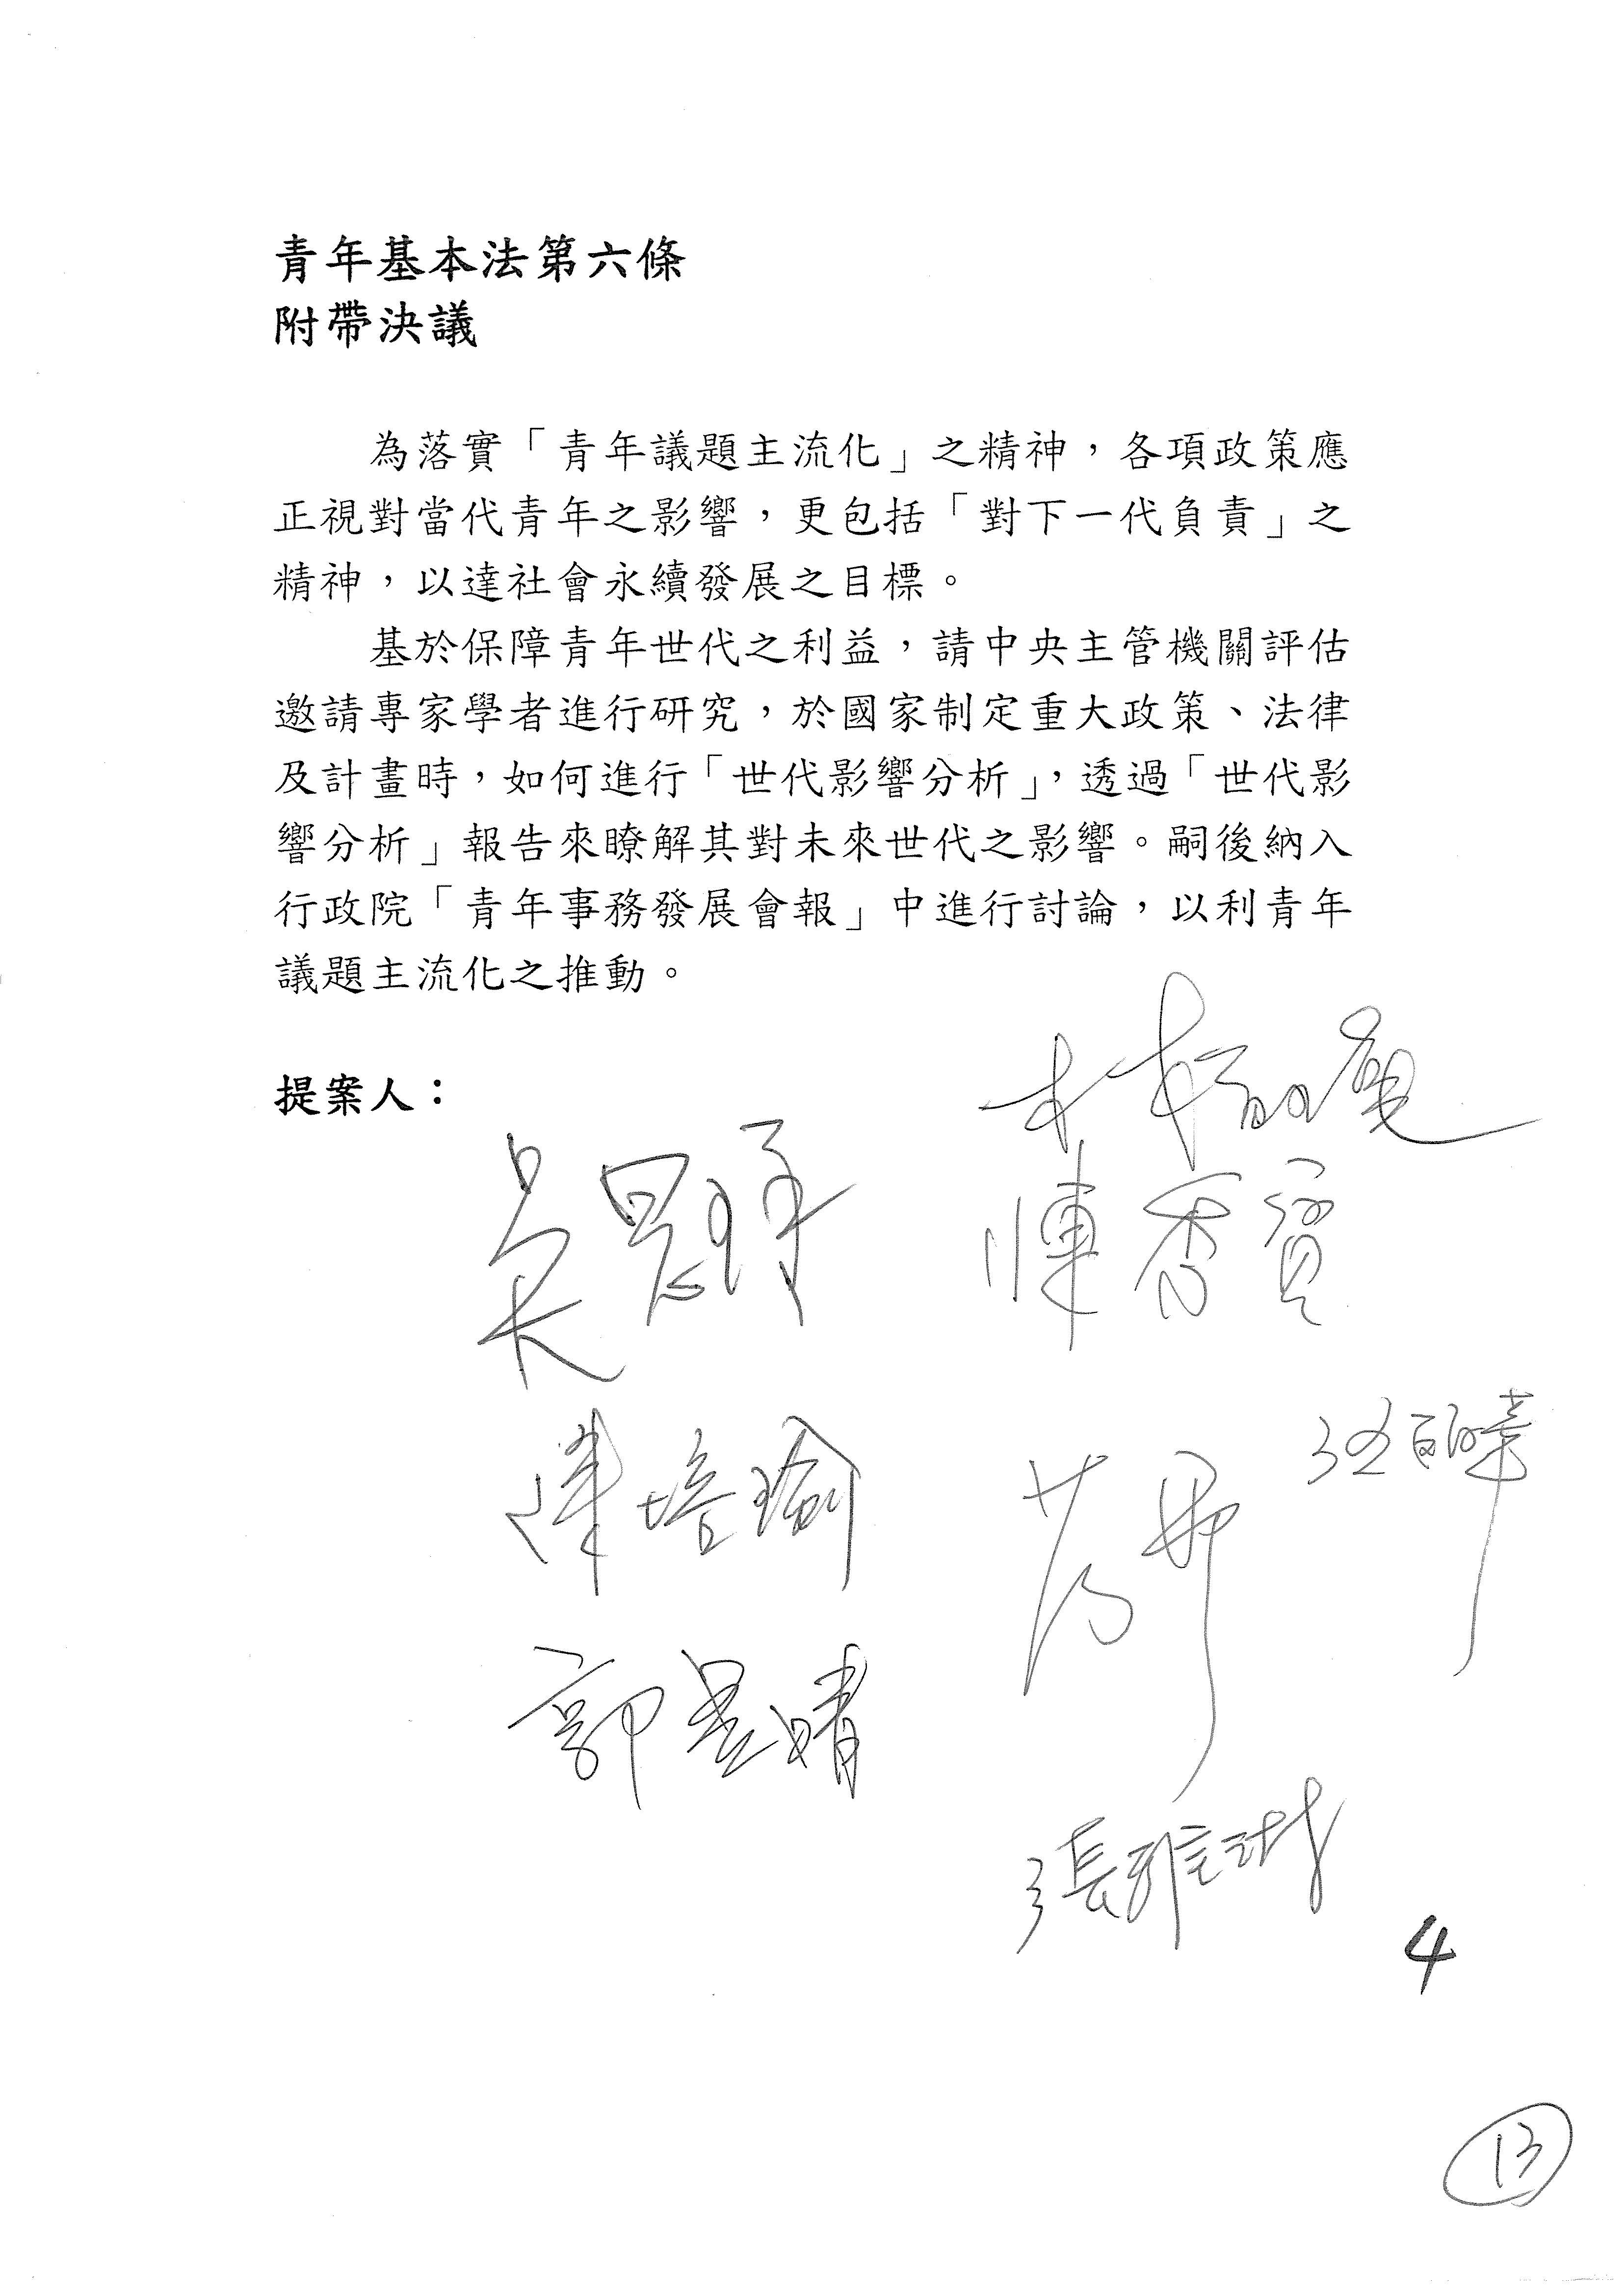 青年基本法第六條
附帶決議
為落實「青年議題主流化」之精神，各項政策應
正視對當代青年之影響，更包括「對下一代負責」之
精神，以達社會永續發展之目標。
基於保障青年世代之利益，請中央主管機關評估
邀請專家學者進行研究，於國家制定重大政策、法律
及計畫時，如何進行「世代影響分析」，透過「世代影
響分析」報告來瞭解其對未來世代之影響。嗣後納入
行政院「青年事務發展會報」中進行討論，以利青年
議題主流化之推動。
提案人：
林宜瑾
吳思瑤
陳秀寳
陳培瑜
范雲
郭昱晴
張雅琳
4
13